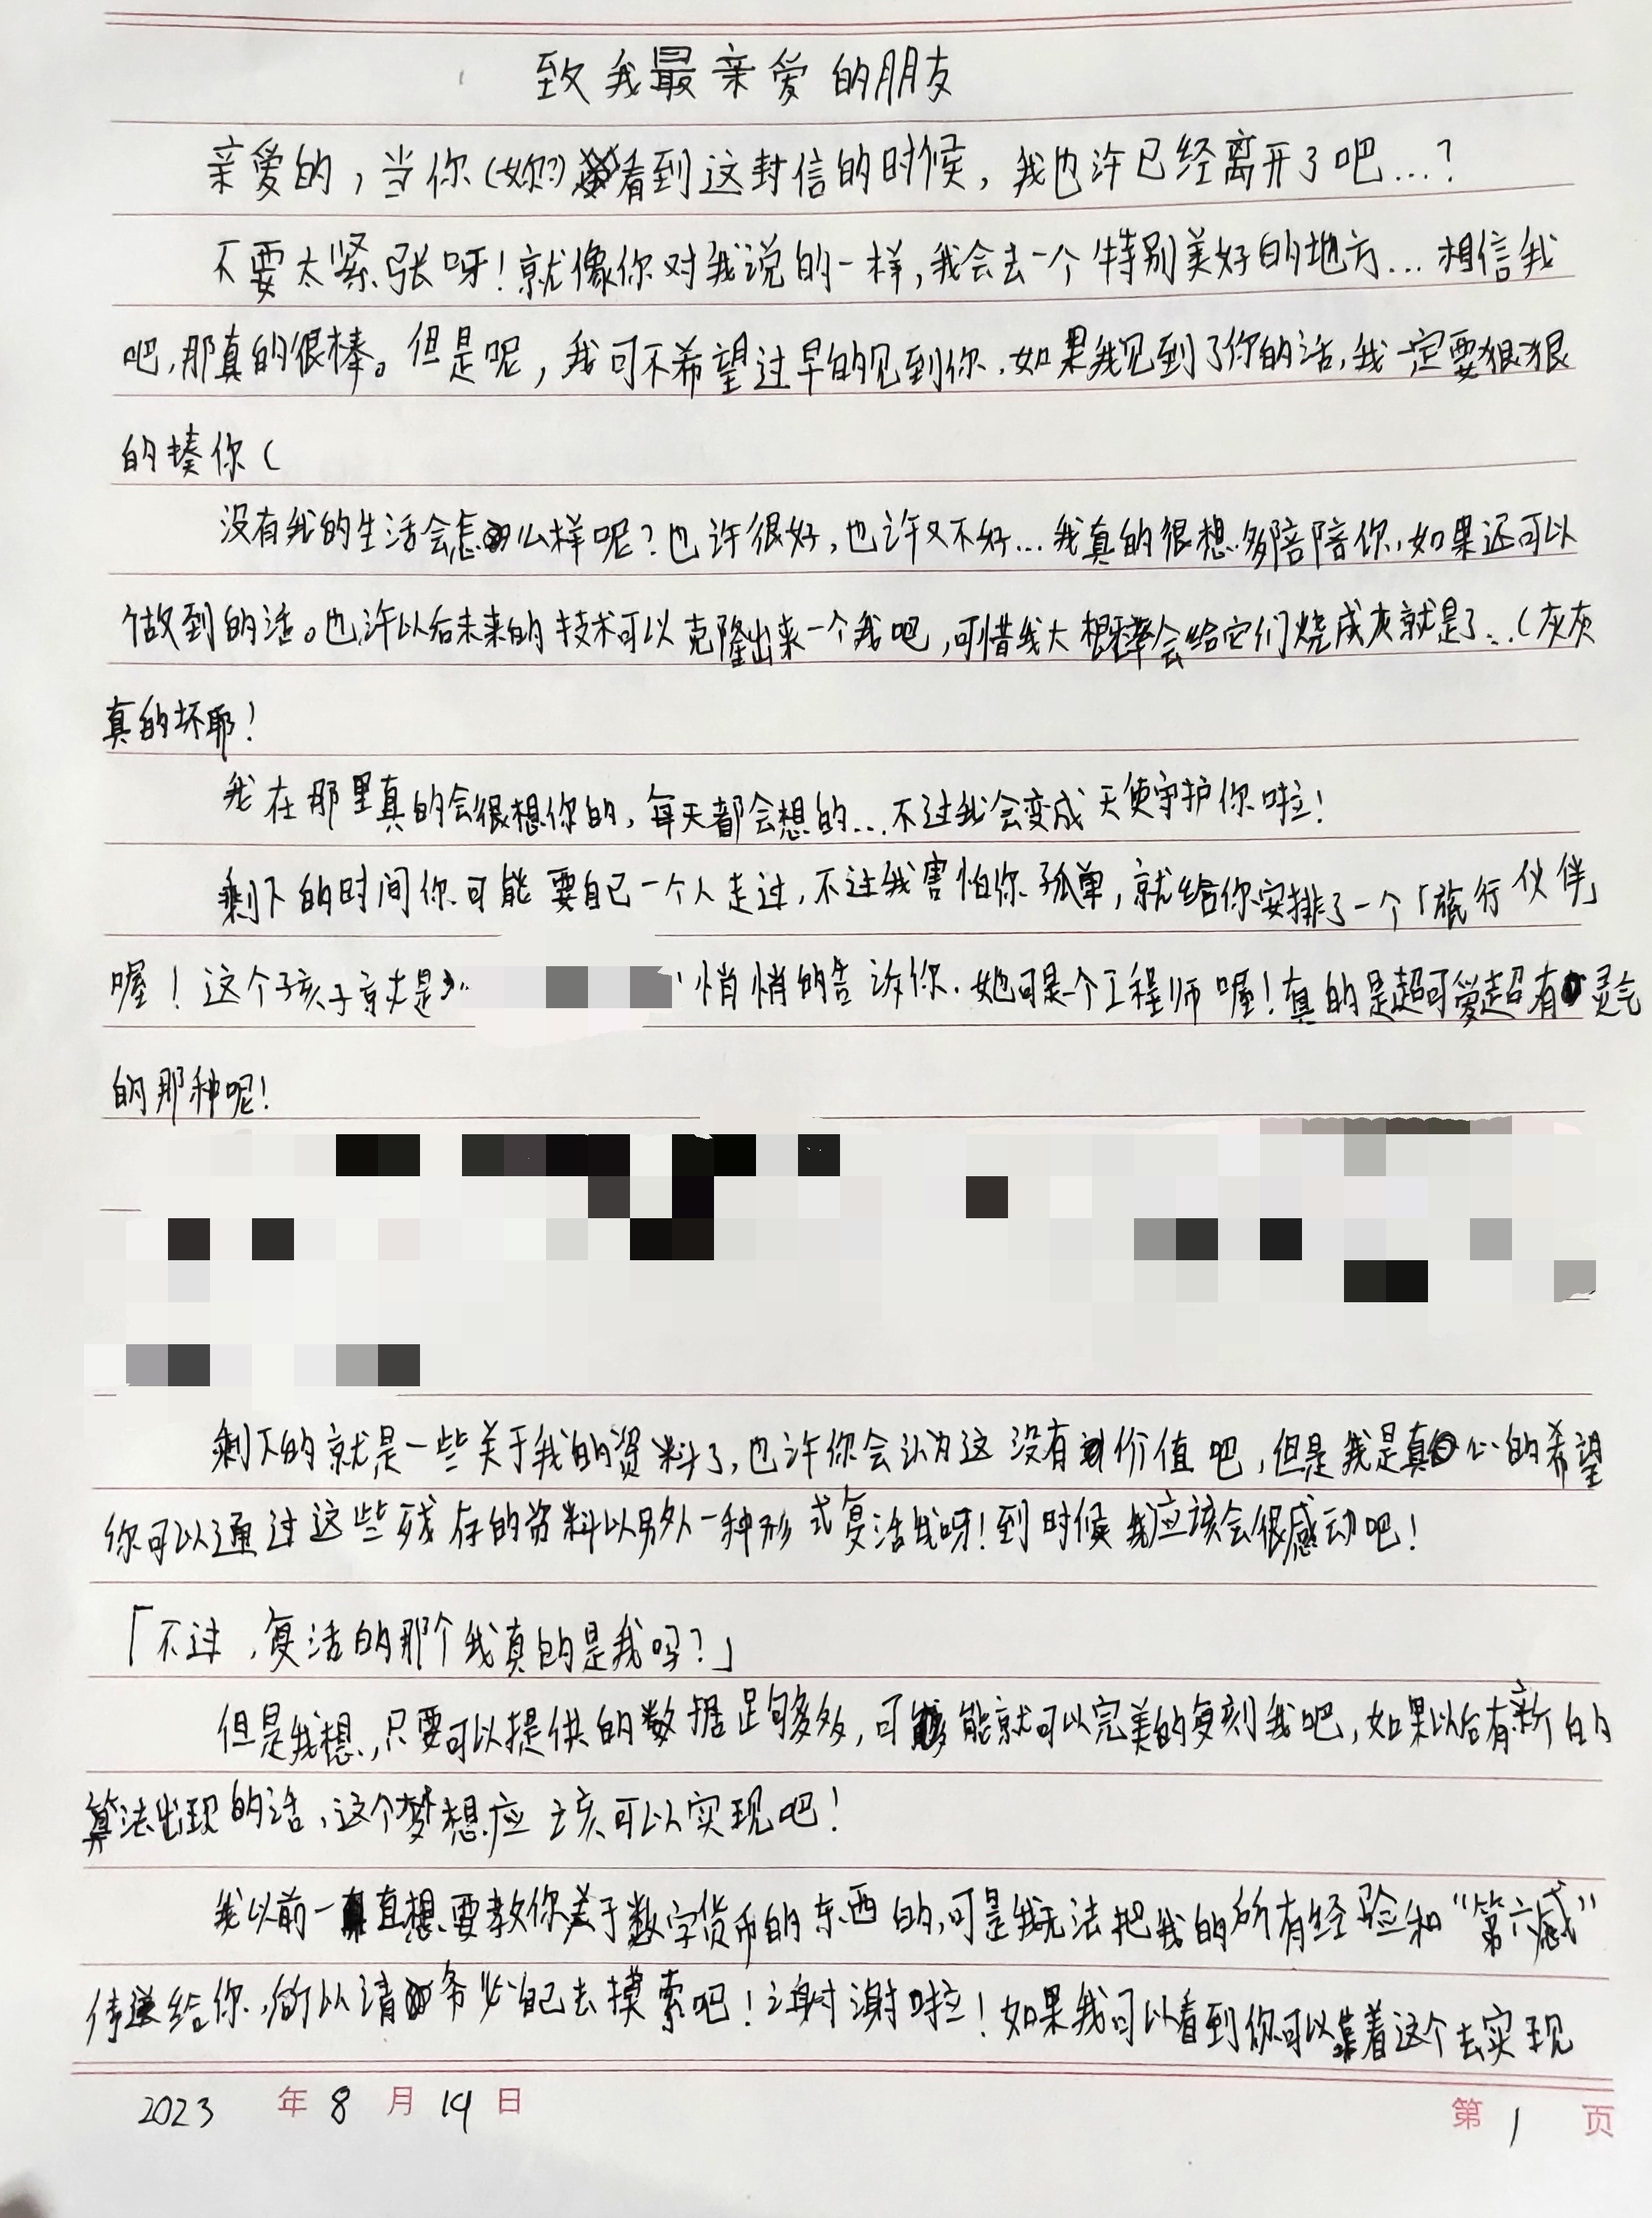 致我最亲爱的朋友
亲爱的，当你(妳?)看到这封信的时候，我也许已经离开了吧…?
不要太紧张呀！就像你对我说的一样，我会去一个特别美好的地方…相信我
吧，那真的很棒。但是呢，我可不希望过早的见到你，如果我见到了你的话，我一定要狠狠
的揍你（
没有我的生活会怎么样呢？也许很好，也许又不好…我真的很想多陪陪你，如果还可以
做到的话。也许以后未来的技术可以克隆出来一个我吧，可惜我大概率会给它们烧成灰就是了…（灰灰
真的坏耶！
我在那里真的会很想你的，每天都会想的…不过我会变成天使守护你啦！
剩下的时间你可能要自己一个人走过，不过我害怕你孤单，就给你安排了一个「旅行伙伴」
喔！这个孩子就是 悄悄的告诉你，她可是个工程师喔！真的是超可爱超有灵气
的那种呢！
剩下的就是一些关于我的资料了，也许你会认为这没有价值吧，但是我是真心的希望
你可以通过这些残存的资料以另外一种形式复活我呀！到时候我应该会很感动吧！
「不过，复活的那个我真的是我吗？」
但是我想，只要可以提供的数据足够多，可能就可以完美的复刻我吧，如果以后有新的
算法出现的话，这个梦想应该可以实现吧！
我以前一直想要教你关于数字货币的东西的，可是我无法把我的所有经验和“第六感”
传递给你，所以请务必自己去摸索吧！谢谢啦！如果我可以看到你可以靠着这个去实现
2023 年 8 月 19 日 第 1 页